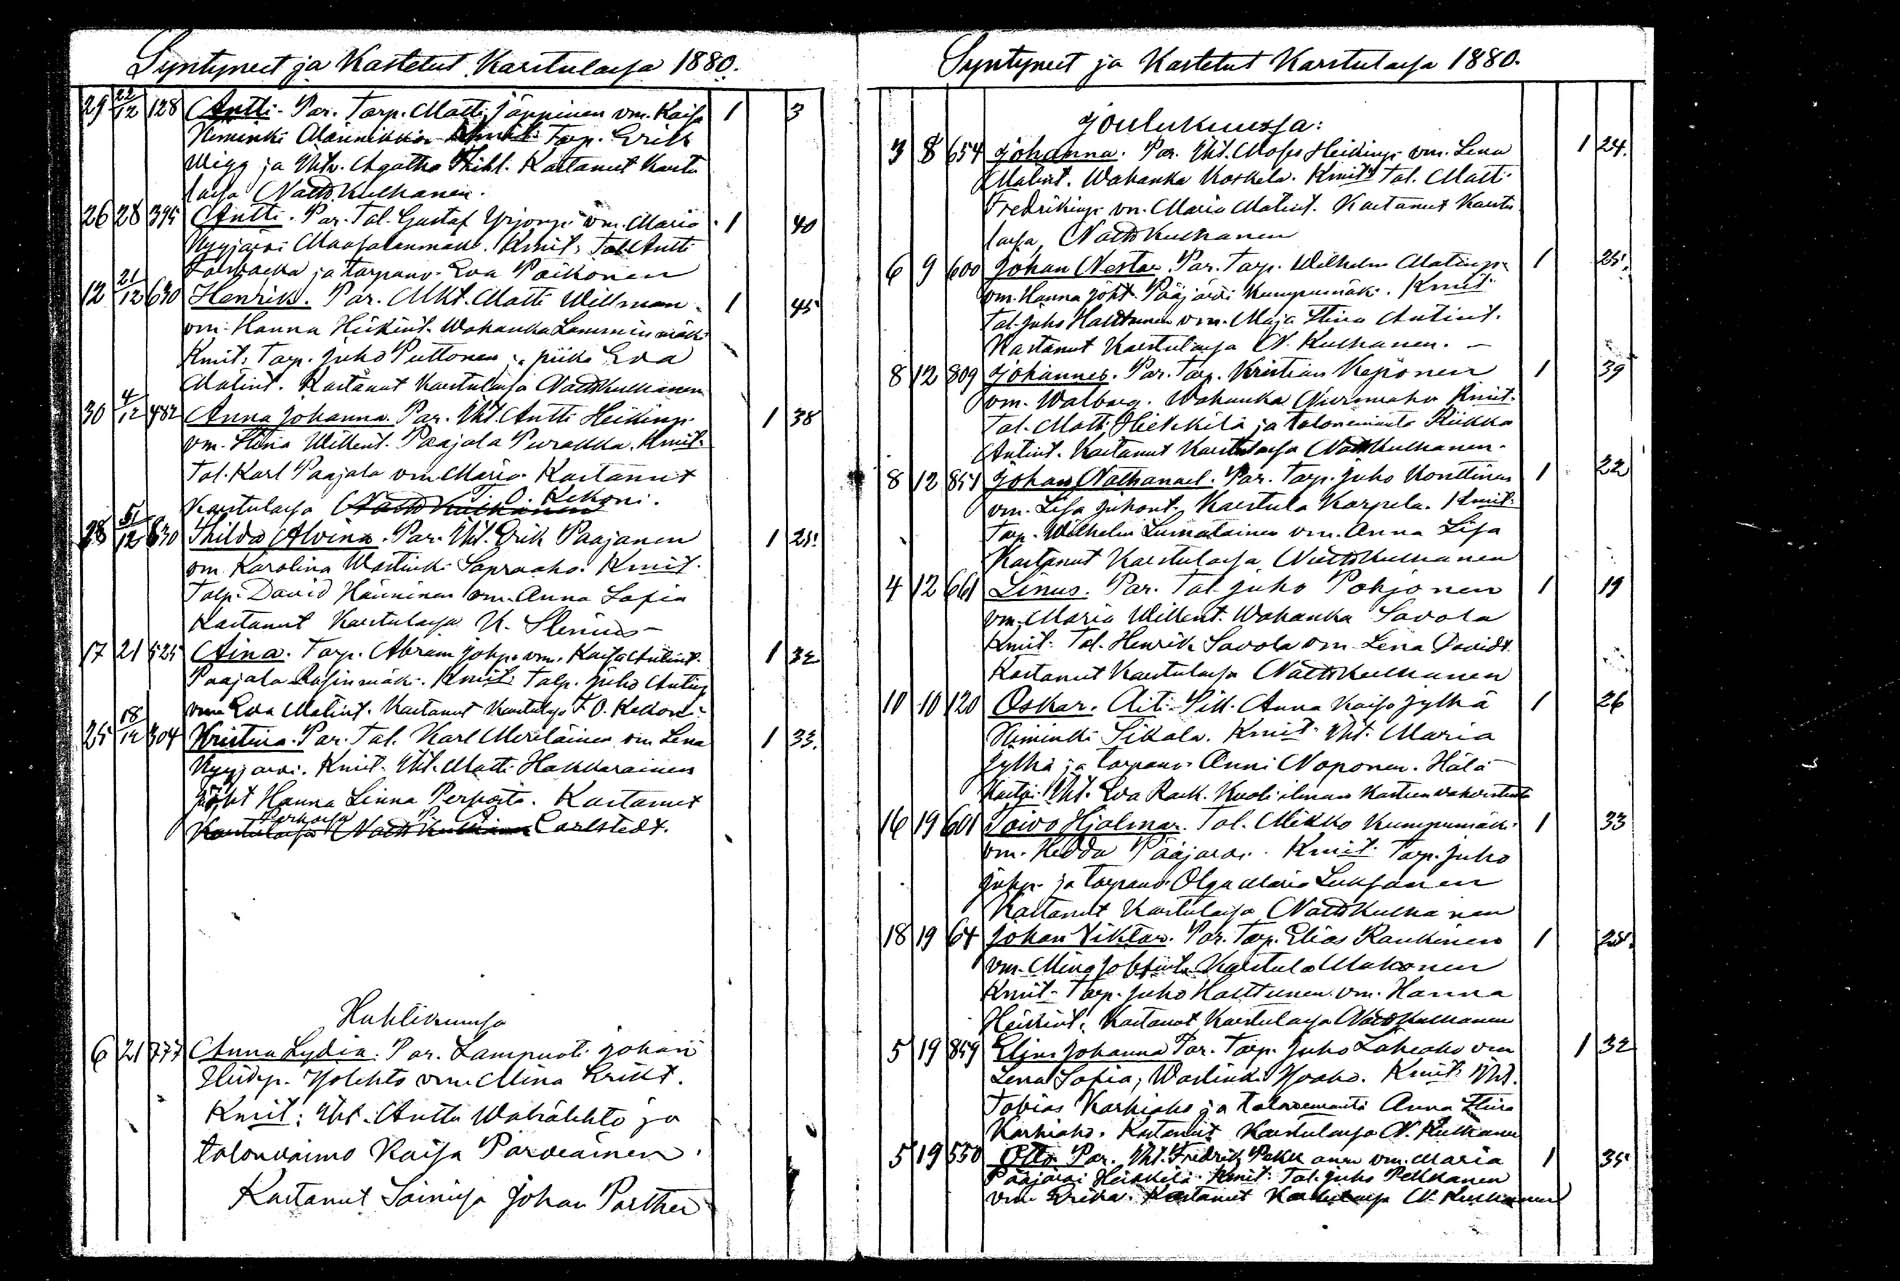 Syntyneet ja Kastetut Karstulassa 1880.
29 22/12 128 Antti. Par. Torp. Matti Jäppinen vm. Kaisa 1 3
Kiminki Männikkö. Kmit: Torp. Erik
Wigg ja Iht. Agatha Kastanut Karstu
lassa Natth Kulhanen.
26 28 395 Antti. Par. Tal. Gustaf Yrjönp. vm. Maria 1 40
Kyyjärvi Maasalanmaki. Kmit: Tal. Antti
ja torpanv. Eva Poikonen
12 21/12 630 Henrik. Par. Mkt. Matti Willman 1 45
vm. Hanna Heikint. Wahanka Lamminmäki
Kmit: Torp. Juho Puttonen ja piika Eva
Matint. Kastanut Karstulassa Natth Kulhanen
30 4/12 482 Anna Johanna. Par. Iht. Antti Heikinp. 1 38
vm. Stina Willent. Paajala Purakka. Kmit:
Tal. Karl Paajala vm. Maria. Kastanut
Karstulassa T. O. Kekoni.
28 5/12 630 Hilda Alvina. Par. Iht. Erik Paajanen 1 25.
vm. Karolina Wastinki Kmit:
Talp. David Hänninen vm. Anna Sofia
Kastanut Karstulassa K. Stenius
17 21 525 Aina. Torp. Abram Johp. vm. Kaisa Antint. 1 32
Paajala Kmit: Talp. Juho Antinp.
vm. Eva Matint. Kastanut Karstulassa T. O. Kekoni
25 18/12 304 Kristina. Par. Tal. Karl Meriläinen vm. Lena 1 33.
Kyyjärvi. Kmit. Iht. Matti Hakkarainen
Hanna Linna Perhosta. Kastanut
Perhossa Carlstedt.
Huhtikuussa
6 21 777 Anna Lydia. Par. Lampuoti Johan
Heikp. vm. Mina Erikt.
Kmit: Iht. Antti Wahälehto ja
talonvaimo Kaisa Parviainen.
Kastanut Johan Porthen
Syntyneet ja Kastetut Karstulassa 1880.
Joulukuussa:
3 8 654 Johanna. Par. Iht. Moses Heikinp. vm. Lena 1 24.
Matint. Wahanka Koskela. Kmit: Tal. Matti
Fredrikinp. vm. Maria Matint. Kastanut Karstu
lassa Natth Kulhanen
6 9 600 Johan Nestor. Par. Torp. Wilhelm Matinp. 1 25.
vm. Hanna Joht. Pääjärvi Kumpumäki. Kmit:
Tal. Juho Halttunen vm. Maja Stina Antint.
Kastanut Karstulassa N. Kulhanen.
8 12 809 Johannes. Par. Torp. Kristian Kepönen 1 39
vm. Walborg. Wahanka Kmit:
Tal. Matti Hiekkilä ja talonemäntä Riikka
Antint. Kastanut Karstulassa Natth Kulhanen.
8 12 851 Johan Nathanael. Par. Torp. Juho Konttinen 1 22
vm. Lisa Juhont. Karstula Karpela. Kmit:
Torp. Wilhelm Lumatainen vm. Anna Lisa
Kastanut Karstulassa Natth Kulhanen
4 12 661 Linus. Par. Tal. Juho Pohjonen 1 19
vm. Maria Willent. Wahanka Savola
Kmit: Tal. Henrik Savola vm. Lena Davidt.
Kastanut Karstulassa Natth Kulhanen
10 10 120 Oskar. Äiti. Itl. Anna Kaisa Jylhä 1 26
Kiminki Sikala. Kmit: Iht. Maria
Jylhä ja torpanv. Anni Noponen. Hätä
kastoi Iht. Eva Rask. Kuoli ilman kasteen vahvistusta
16 19 601 Toivo Hjalmar. Tal. Mikko Kumpumäki 1 33
vm. Hedda Pääjärvi. Kmit: Torp. Juho
Juhp. ja torpanv. Olga Maria Leuhjanen
Kastanut Karstulassa Natth Kulhanen
18 19 64 Johan Viktor. Par. Torp. Elias Raukinen 1
vm. Mina Karstula Makonen
Kmit: Torp. Juho Halttunen vm. Hanna
Heikint. Kastanut Karstulassa Natth Kulhanen
5 19 859 Elina Johanna Par. Torp. Juho vm 1 32
Lena Sofia, Wastinki Kmit: Iht.
Tobias Karhiaho ja talonemäntä Anna Stina
Karhiaho. Kastanut Karstulassa N. Kulhanen
5 19 550 Otto Par. Iht. Fredrik Pekkanen vm. Maria 1 35
Pääjärvi Heikkilä Kmit: Tal. Juho Pekkanen
vm. Erika. Kastanut Karstulassa N. Kulhanen